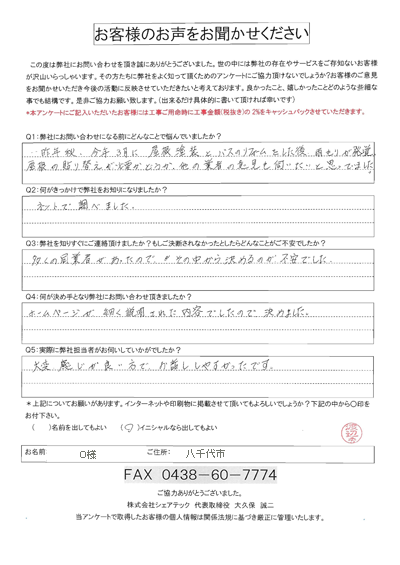 お客様のお声をお聞かせください
この度は弊社にお問い合わせを頂き誠にありがとうございました。世の中には弊社の存在やサービスをご存知ないお客様
が沢山いらっしゃいます。その方たちに弊社をよく知って頂くためのアンケートにご協力頂けないでしょうか？お客様のご意見
をお聞かせいただき今後の活動に反映させていただきたいと考えております。良かったこと、嬉しかったことどのような些細な
事でも結構です。是非ご協力お願い致します。（出来るだけ具体的に書いて頂ければ幸いです）
*本アンケートにご記入いただいたお客様には工事ご用命時に工事金額（税抜き）の2%をキャッシュバックさせていただきます。
Q1：弊社にお問い合わせになる前にどんなことで悩んでいましたか？
昨年秋、今年3月に屋根塗装とバスのリフォームをした後 雨もりが発覚
屋根の貼り替えが必要かどうか、他の業者の意見も伺いたいと思ってました。
Q2：何がきっかけで弊社をお知りになりましたか？
ネットで調べました。
Q3：弊社を知りすぐにご連絡頂けましたか？もしご決断されなかったとしたらどんなことがご不安でしたか？
多くの同業者があったので その中から決めるのが不安でした。
Q4：何が決め手となり弊社にお問い合わせ頂きましたか？
ホームページが細く説明された内容でしたので決めました。
Q5：実際に弊社担当者がお伺いしていかがでしたか？
大変感じが良い方でお話ししやすかったです。
＊上記についてお願いがあります。インターネットや印刷物に掲載させて頂いてもよろしいでしょうか？下記の中から○印を
お付下さい。
（　）名前を出してもよい　（○）イニシャルなら出してもよい
お名前　O様　ご住所：　八千代市
FAX 0438－60－7774
ご協力ありがとうございました。
株式会社シェアテック 代表取締役 大久保 誠二
当アンケートで取得したお客様の個人情報は関係法規に基づき厳正に管理いたします。